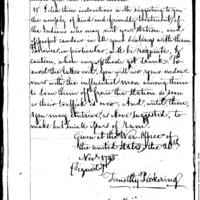 10 I close these instructions in suggesting to you
the necessity of kind and friendly treatment of
the Indians who may visit your Station, and
of great candor in all your dealings with them.
in particular, will be requisite, &
caution, when any of them get drunk. To
avoid the latter evil, you will use your endea-
vours with the influential men among them,
to draw them off from the Station as soon
as their traffic is over. And, until then,
you may contrive, as above suggested, to
make but little Spare of Rum.
Given at the War Office of
the United States, the 26th
Novr 1795
(Signed)
Timothy Pickering